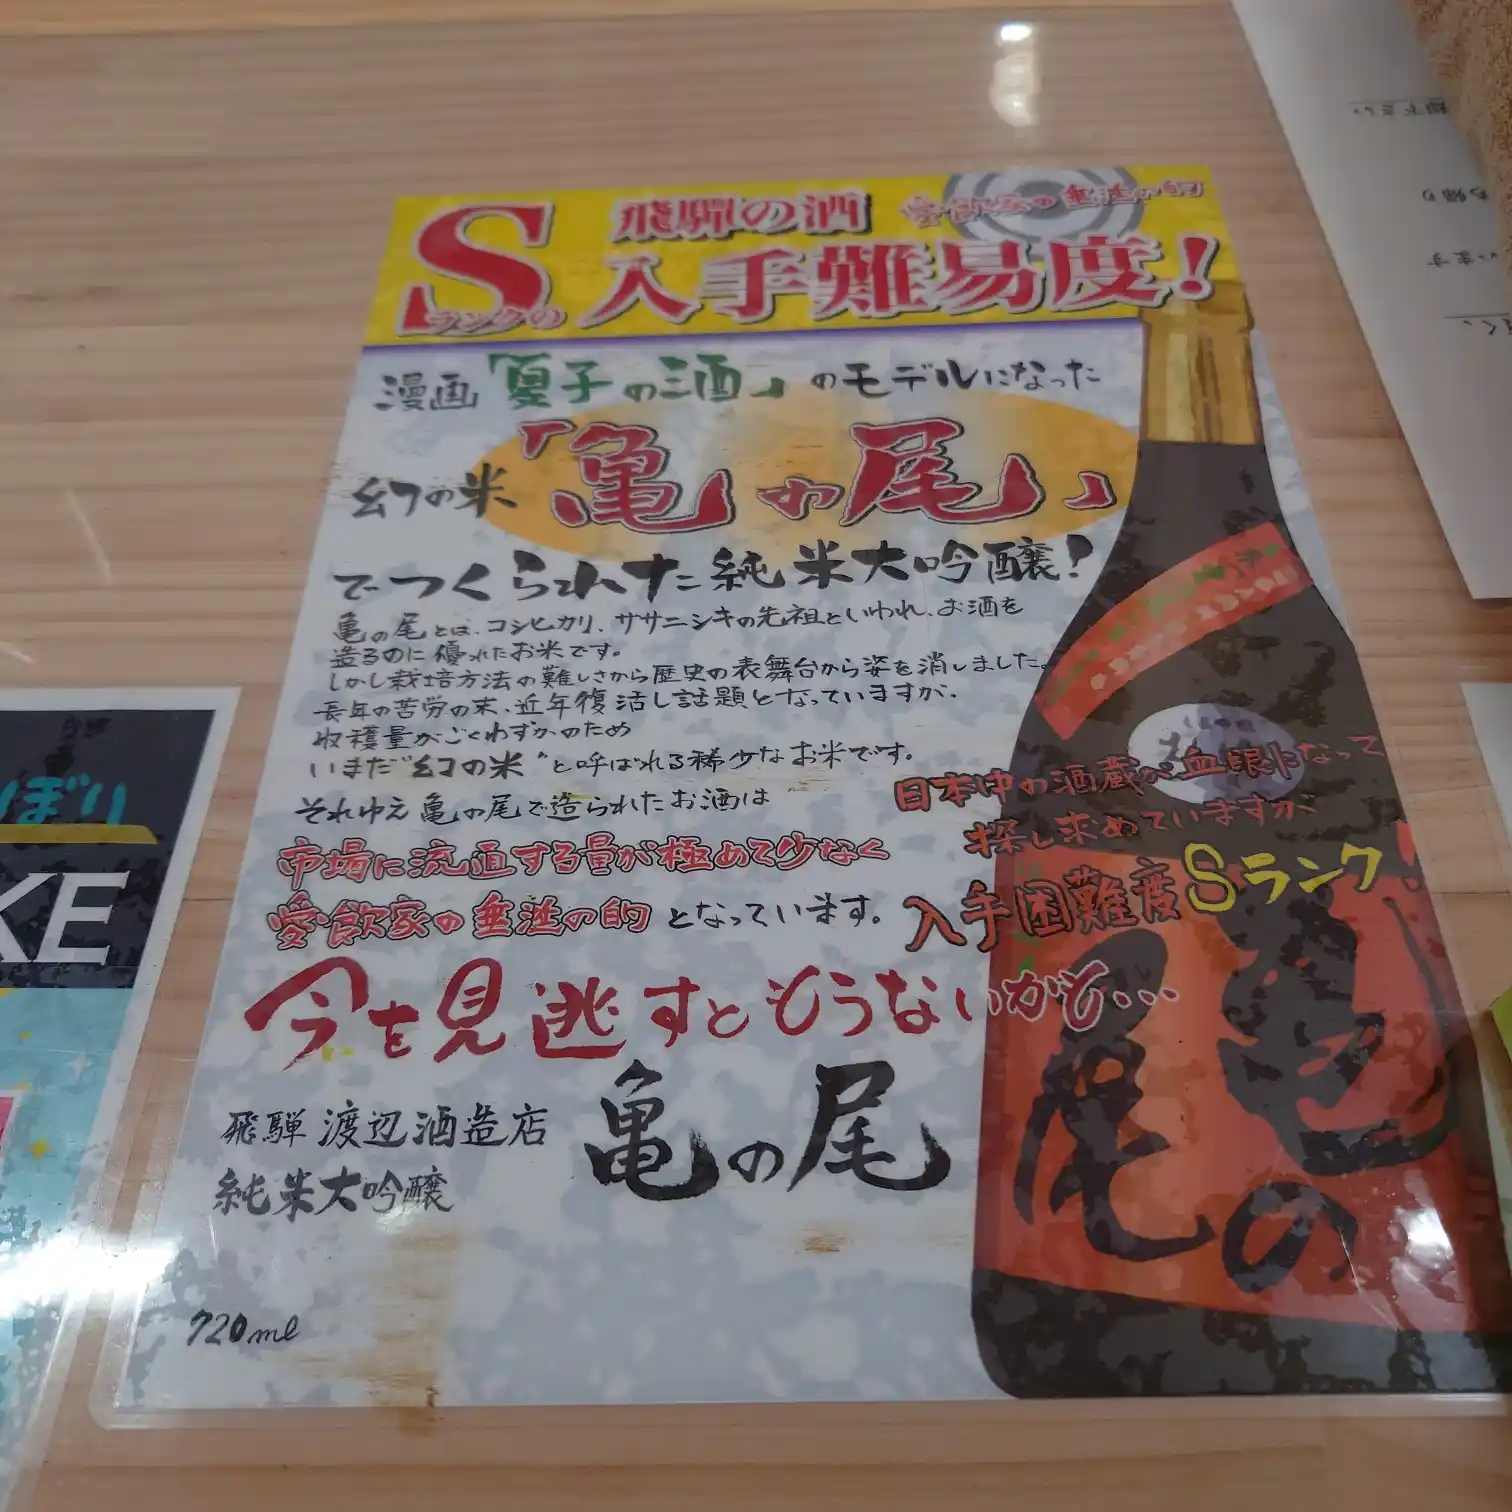 飛騨の酒
愛飲家の垂涎の的
Sランクの入手難易度!
漫画「夏子の酒」のモデルになった
幻の米「亀の尾」
でつくられた純米大吟醸!
亀の尾とは、コシヒカリ、ササニシキの先祖といわれ、お酒を
造るのに優れたお米です。
しかし栽培方法の難しさから歴史の表舞台から姿を消しました。
長年の苦労の末、近年復活し話題となっていますが、
収穫量がごくわずかのため
いまだ"幻の米"と呼ばれる稀少なお米です。
それゆえ亀の尾で造られたお酒は
市場に流通する量が極めて少なく
愛飲家の垂涎の的となっています。
日本中の酒蔵が血眼になって
探し求めていますが
入手困難度Sランク!
今を見逃すともうないかも...
飛騨渡辺酒造店
純米大吟醸
亀の尾
720ml
亀の尾
ぼり
KE
います